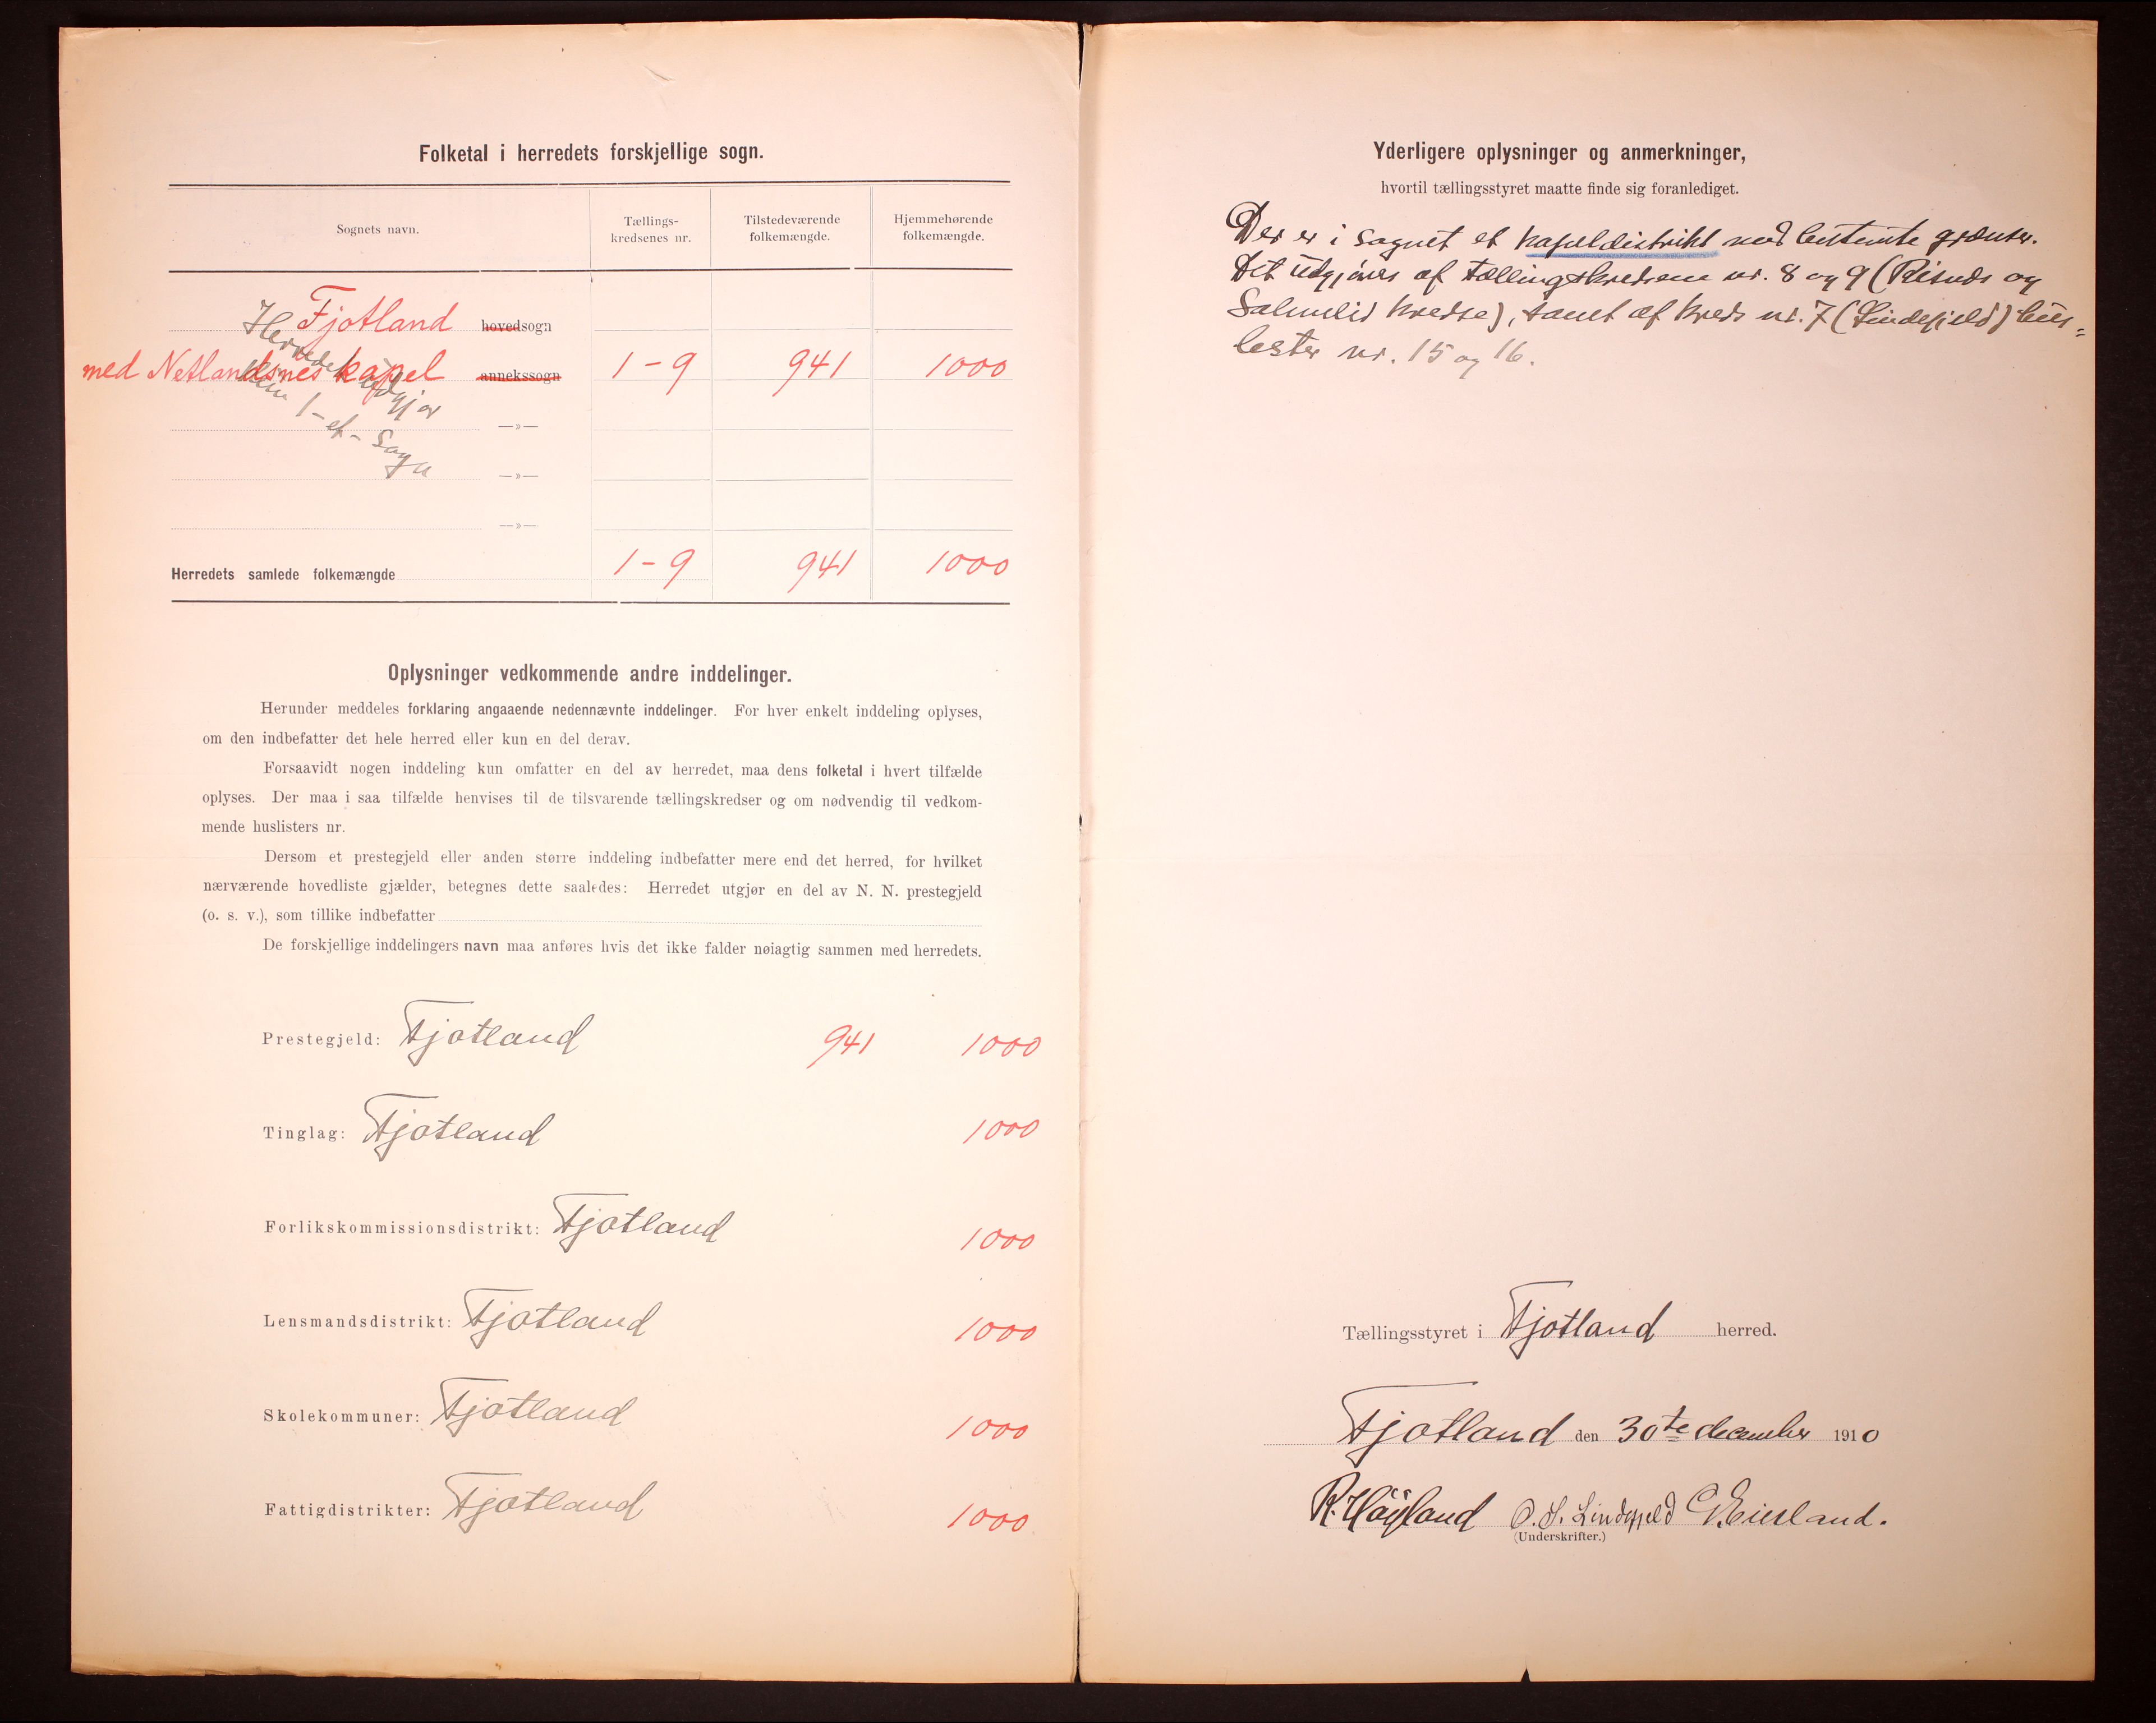 Folketal i herredets forskjellige sogn.
Sognets navn.
Tællings-
kredsenes nr.
Tilstedeværende
folkemængde.
Hjemmehørende
folkemængde.
Fjotland hovedsogn
med Netlandsnes kapel annekssogn 1-9 941 1000
Herredet udgjør
kun 1-et- Sogn
—»—
—»—
—»—
Herredets samlede folkemængde 1-9 941 1000
Oplysninger vedkommende andre inddelinger.
Herunder meddeles forklaring angaaende nedennævnte inddelinger. For hver enkelt inddeling oplyses,
om den indbefatter det hele herred eller kun en del derav.
Forsaavidt nogen inddeling kun omfatter en del av herredet, maa dens folketal i hvert tilfælde
oplyses. Der maa i saa tilfælde henvises til de tilsvarende tællingskredser og om nødvendig til vedkom-
mende huslisters nr.
Dersom et prestegjeld eller anden større inddeling indbefatter mere end det herred, for hvilket
nærværende hovedliste gjælder, betegnes dette saaledes: Herredet utgjør en del av N. N. prestegjeld
(o. s. v.), som tillike indbefatter
De forskjellige inddelingers navn maa anføres hvis det ikke falder nøiagtig sammen med herredets.
Prestegjeld: Fjotland 941 1000
Tinglag: Fjotland 1000
Forlikskommissionsdistrikt: Fjotland 1000
Lensmandsdistrikt: Fjotland 1000
Skolekommuner: Fjotland 1000
Fattigdistrikter: Fjotland 1000
Yderligere oplysninger og anmerkninger,
hvortil tællingsstyret maatte finde sig foranlediget.
Der er i sognet et kapeldistrikt med bestemte grænser.
Det udgjøres af tællingskredsene nr. 8 og 9 (Risnds og
Salmelid kredse), samt af kreds nr. 7 (Lindefjeld) hus-
lister nr. 15 og 16.
Tællingsstyret i Fjotland herred.
Fjotland den 30te december 1910
R. Høyland O. S. Lindefjeld Eiesland.
(Underskrifter.)